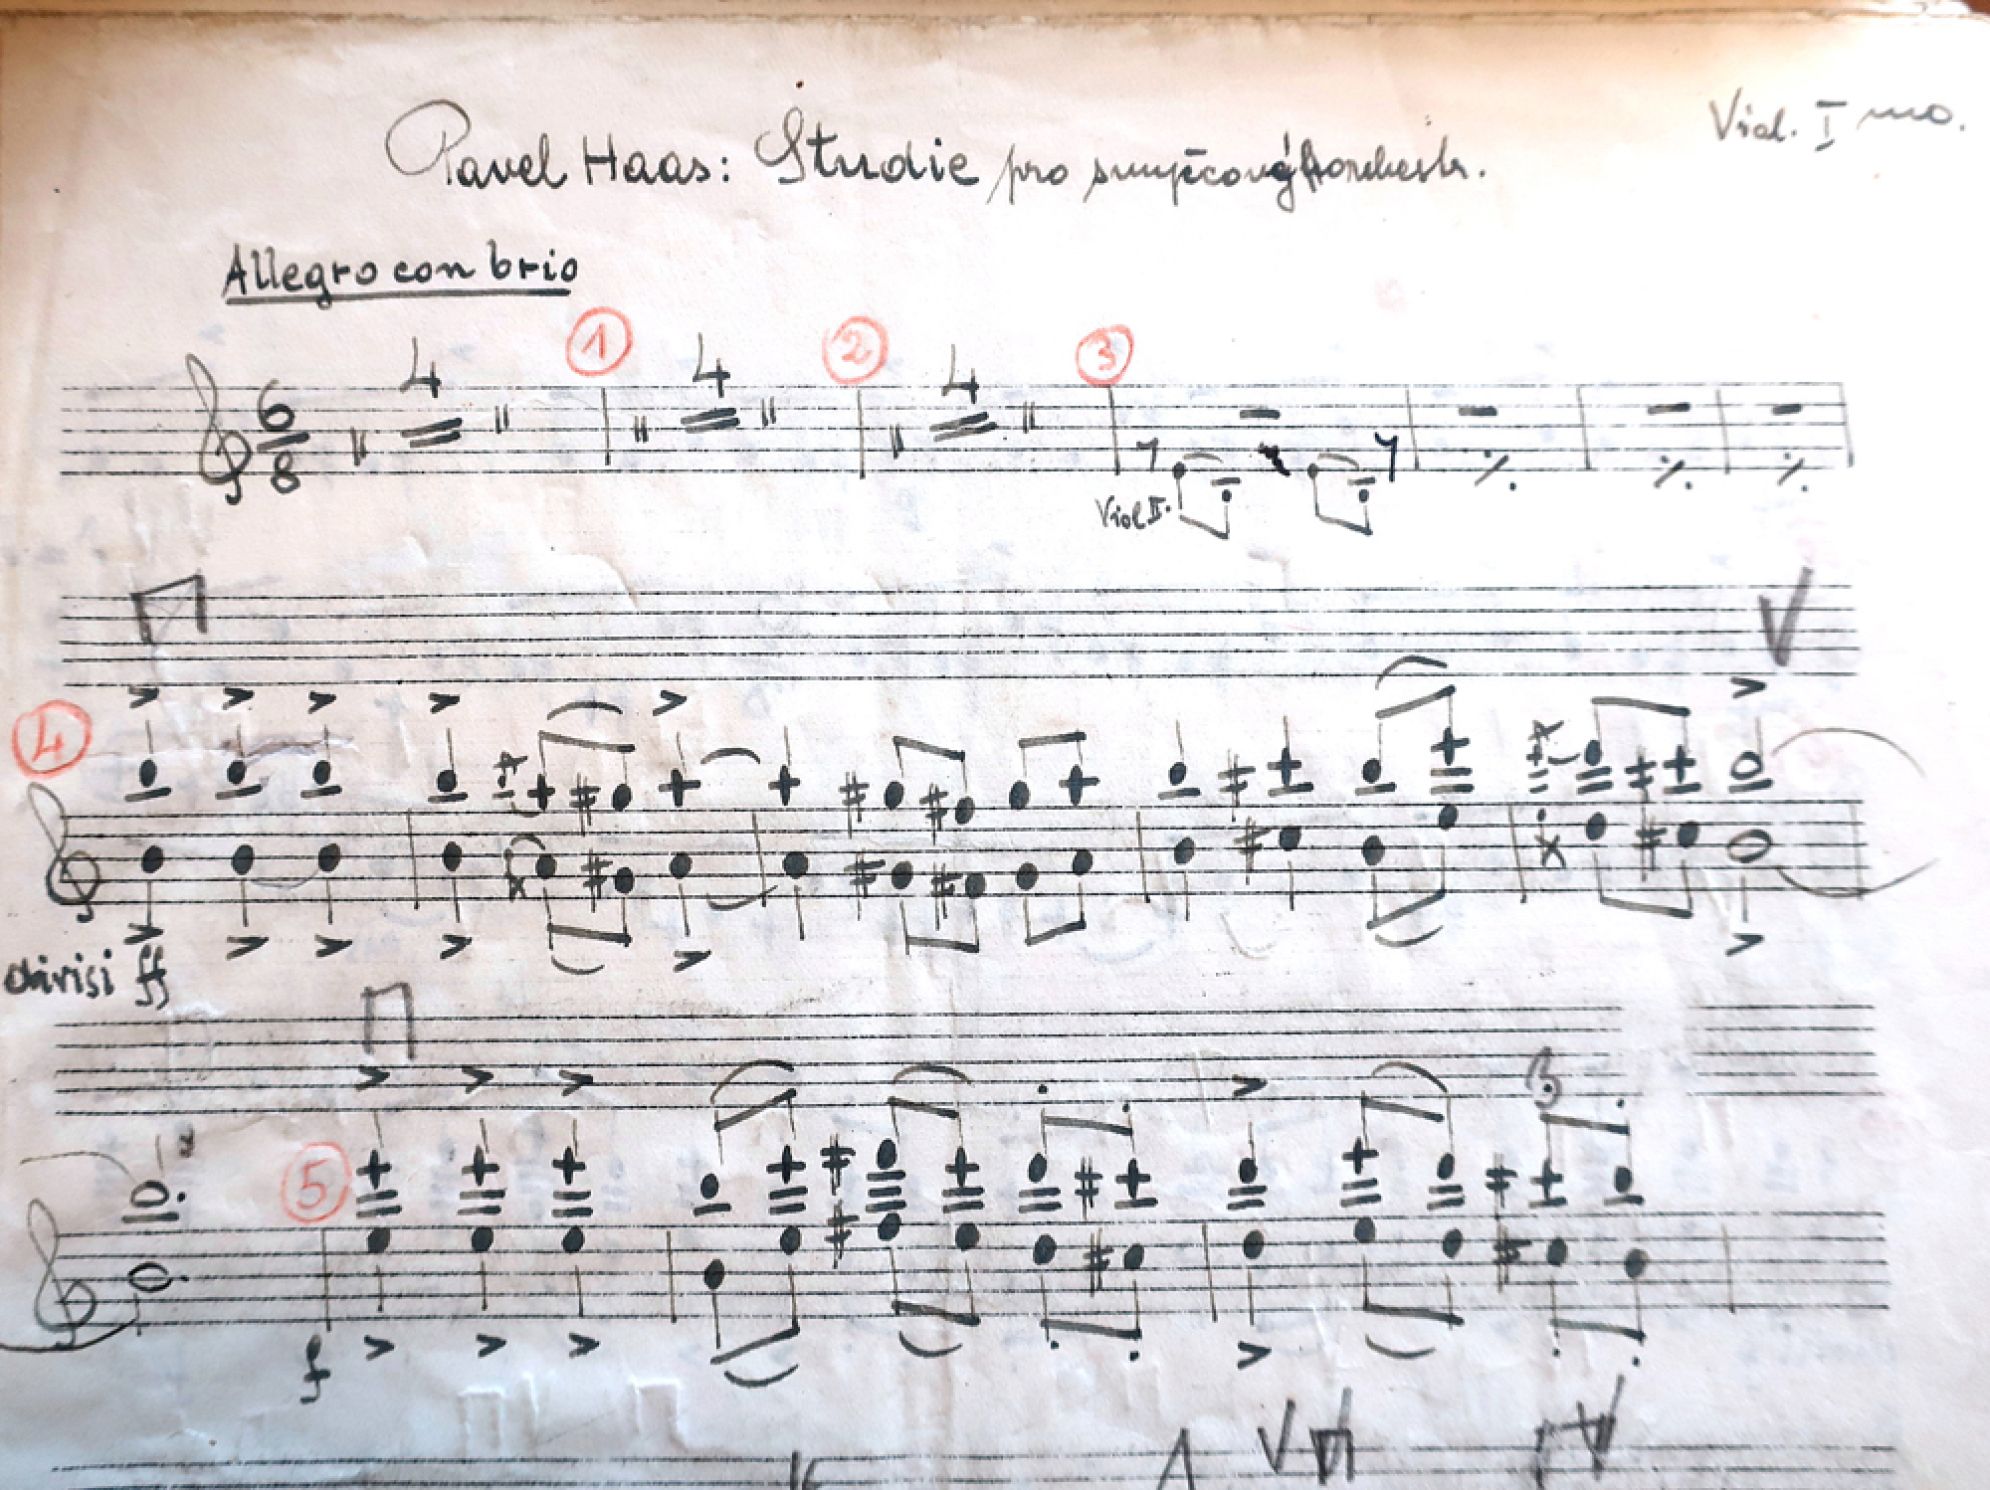 Viol. I mo.
Pavel Haas: Studie pro smyčcový orchestr.
Allegro con brio
1 2 3
4 4 4
6
8
Viol II.
4
divisi ff
5
3
f